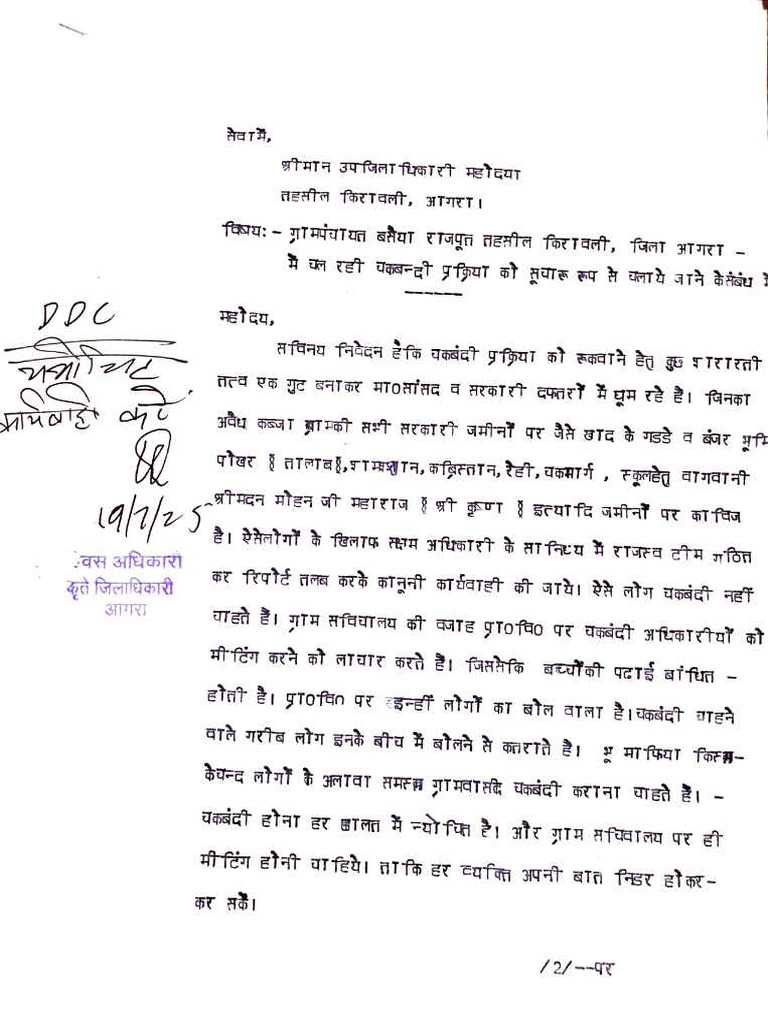 सेवामें,
श्रीमान उपजिलाधिकारी महोदया
तहसील किरावली, आगरा।
विषय:- ग्रामपंचायत बसैया राजपूत तहसील किरावली, जिला आगरा -
में चल रही चकबन्दी प्रक्रिया को सूचारू रूप से चलाये जाने केसंबंध में
महोदय,
सविनय निवेदन हैकि चकबंदी प्रक्रिया को रूकवाने हेतु कुछ शरारती
तत्व एक गुट बनाकर मा०सांसद व सरकारी दफ्तरों में घूम रहे है। जिनका
अवैध कब्जा ग्रामकी सभी सरकारी जमीनों पर जैसे खाद के गडडे व बंजर भूमि
पोखर § तालाब§,शमशान,कब्रिस्तान,रेही,चकमार्ग , स्कूलहेतु वागवानी
श्रीमदन मोहन जी महाराज § श्री कृष्णा § इत्यादि जमीनों पर काविज
है। ऐसेलोगों के खिलाफ सक्षम अधिकारी के सानिध्य में राजस्व टीम गठित
कर रिपोर्ट तलब करके कानूनी कार्यवाही की जाये। ऐसे लोग चकबंदी नहीं
चाहते है। ग्राम सविचालय की वजाह प्रा०वि० पर चकबंदी अधिकारीयों को
मीटिंग करने को लाचार करते है। जिससेकि बच्चोंकी पढाई बांधित -
होती है। प्रा०वि० पर इन्हीं लोगों का बोल वाला है।चकबंदी चाहने
वाले गरीब लोग इनके बीच में बोलने से कतराते है। भू माफिया किस्म-
केचन्द लोगों के अलावा समस्त ग्रामवासी चकबंदी कराना चाहते है। -
चकबंदी होना हर हालत में न्योचित है। और ग्राम सचिवालय पर ही
मीटिंग होनी चाहिये। ताकि हर व्यक्ति अपनी बात निडर होकर-
कर सकें।
/2/--पर
DDC
यथोचित
कार्यवाही करें
19/7/25
वस अधिकारी
कृते जिलाधिकारी
आगरा